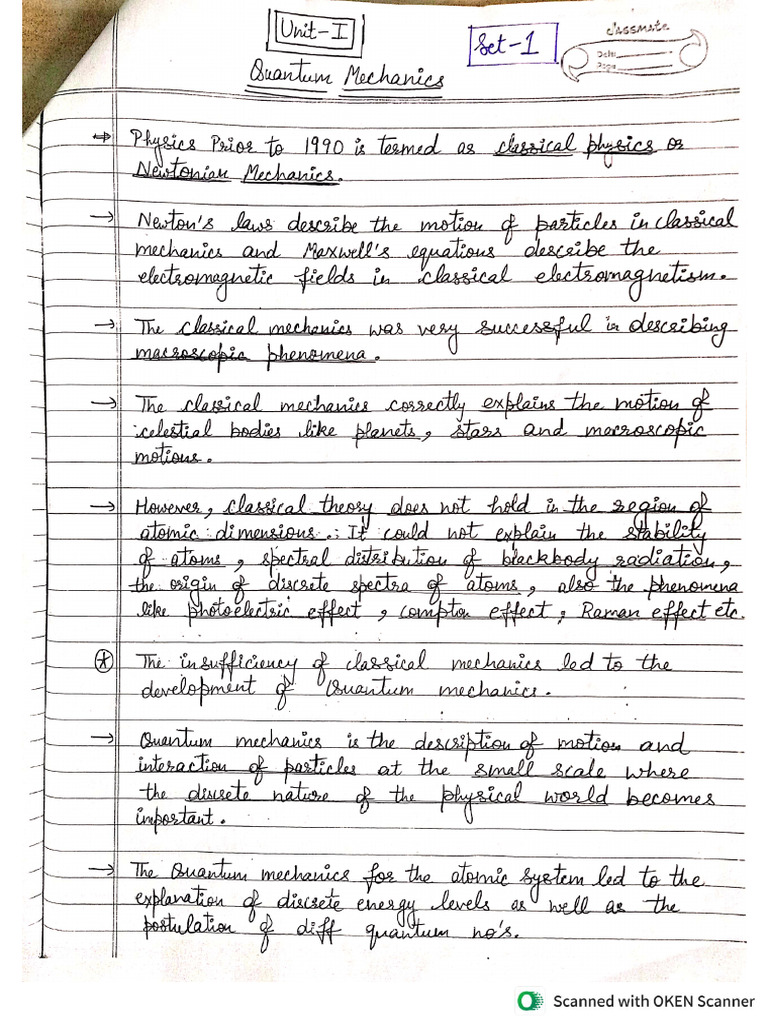 Unit-I
Set-1
classmate
Date
Page
Quantum Mechanics
⇒ Physics Prior to 1990 is termed as classical physics or
Newtonian Mechanics.
→ Newton's laws describe the motion of particles in classical
mechanics and Maxwell's equations describe the
electromagnetic fields in classical electromagnetism.
→ The classical mechanics was very successful in describing
macroscopic phenomena.
→ The classical mechanics correctly explains the motion of
celestial bodies like planets, stars and macroscopic
motions.
→ However, classical theory does not hold in the region of
atomic dimensions. It could not explain the stability
of atoms, spectral distribution of blackbody radiation,
the origin of discrete spectra of atoms, also the phenomena
like photoelectric effect, compton effect, Raman effect etc.
* The insufficiency of classical mechanics led to the
development of Quantum mechanics.
→ Quantum mechanics is the description of motion and
interaction of particles at the small scale where
the discrete nature of the physical world becomes
important.
→ The Quantum mechanics for the atomic system led to the
explanation of discrete energy levels as well as the
postulation of diff quantum no's.
Scanned with OKEN Scanner